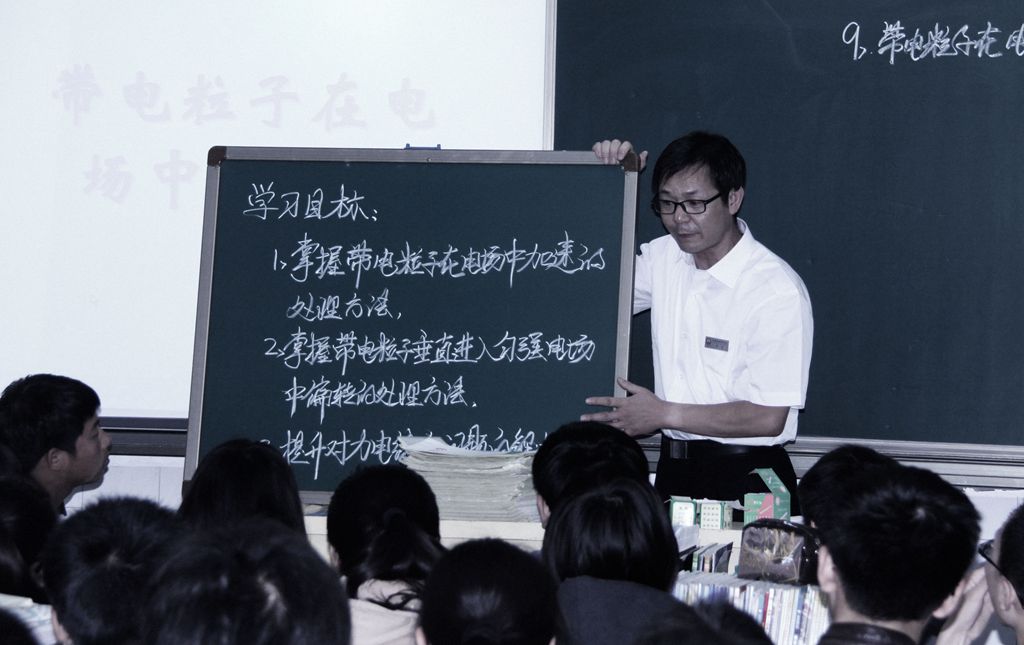 9、带电粒子在电
带电粒子在电
场中
学习目标:
1、掌握带电粒子在电场中加速的
处理方法.
2、掌握带电粒子垂直进入匀强电场
中偏转的处理方法.
提升对力电